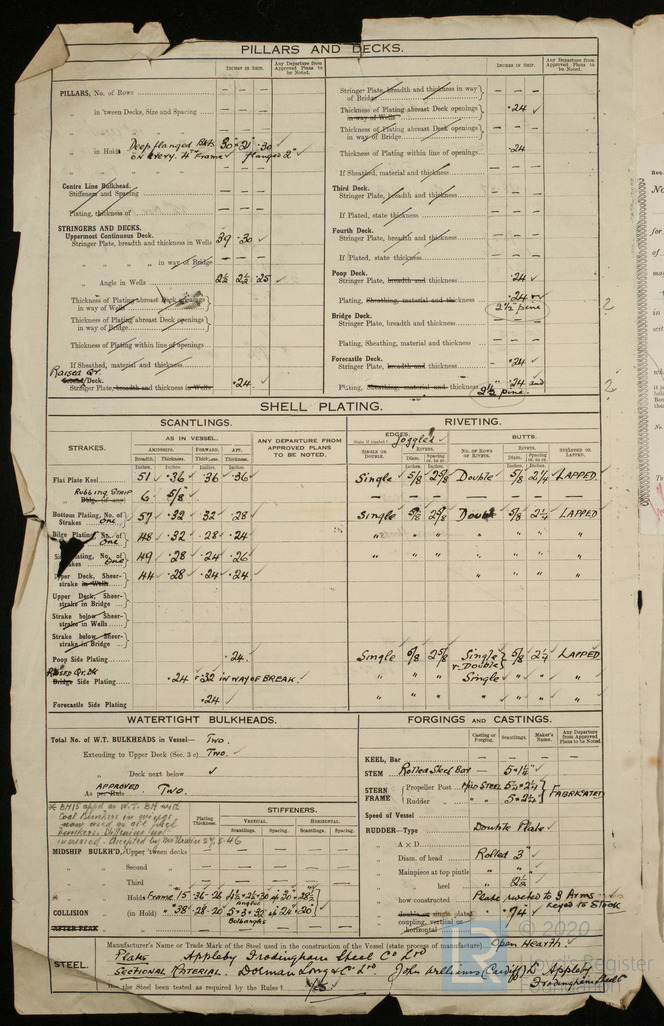 PILLARS AND DECKS.
INCHES IN SHIP.
Any Departure from Approved Plans to be Noted.
PILLARS, No. of Rows
„ in 'tween Decks, Size and Spacing
„ in Holds Deep flanged Bkts 30 × 21 · 30
on every 4th Frame flanged 2"
Centre Line Bulkhead.
Stiffeners and Spacing
Plating, thickness of
STRINGERS AND DECKS.
Uppermost Continuous Deck.
Stringer Plate, breadth and thickness in Wells 39 · 30 ✓
„ „ „ „ in way of Bridge
„ Angle in Wells 2½ 2½ · 25 ✓
Thickness of Plating abreast Deck openings in way of Wells
Thickness of Plating abreast Deck openings in way of Bridge
Thickness of Plating within line of openings
If Sheathed, material and thickness
Raised Qr.
Second Deck.
Stringer Plate, breadth and thickness in Wells · 24 ✓
INCHES IN SHIP.
Any Departure from Approved Plans to be Noted.
Stringer Plate, breadth and thickness in way of Bridge
Thickness of Plating abreast Deck openings in way of Wells · 24 ✓
Thickness of Plating abreast Deck openings in way of Bridge
Thickness of Plating within line of openings · 24
If Sheathed, material and thickness
Third Deck.
Stringer Plate, breadth and thickness
If Plated, state thickness
Fourth Deck.
Stringer Plate, breadth and thickness
If Plated, state thickness
Poop Deck.
Stringer Plate, breadth and thickness · 24 ✓
Plating, Sheathing, material and thickness · 24
2½ pine
Bridge Deck.
Stringer Plate, breadth and thickness
Plating, Sheathing, material and thickness
Forecastle Deck.
Stringer Plate, breadth and thickness · 24 ✓
Plating, Sheathing, material and thickness · 24 and
2½ pine.
SHELL PLATING.
SCANTLINGS.
STRAKES.
AS IN VESSEL.
AMIDSHIPS. FORWARD. AFT.
Breadth Thickness. Thickness. Thickness.
ANY DEPARTURE FROM APPROVED PLANS TO BE NOTED.
RIVETING.
EDGES. Joggled ✓
State if joggled
SINGLE OR DOUBLE.
RIVETS.
Diam. Spacing cr. to cr.
BUTTS.
NO. OF ROWS OF RIVETS.
RIVETS.
Diam. Spacing cr. to cr.
STRAPPED OR LAPPED.
Flat Plate Keel 51 ✓ · 36 ✓ · 36 ✓ · 36 ✓ Single 5/8 2 5/8 Double 5/8 2¼ LAPPED
„ Rubbing Strip 6 5/8
Bottom Plating, No. of Strakes one 57 ✓ · 32 ✓ · 32 ✓ · 28 ✓ Single 5/8 2 5/8 Double 5/8 2¼ LAPPED
Bilge Plating, No. of one 48 ✓ · 32 ✓ · 28 ✓ · 24
Plating, No. of one 49 · 28 · 24 ✓ · 26
Upper Deck, Sheer-strake in Wells 44 ✓ · 28 ✓ · 24 ✓ · 24
Upper Deck, Sheer-strake in Bridge
Strake below Sheer-strake in Wells
Strake below Sheer-strake in Bridge
Poop Side Plating · 24 ✓ Single 5/8 2 5/8 Single & Double 5/8 2¼ LAPPED
Raised Qr. Dk
Bridge Side Plating · 24 ✓ · 32 IN WAY OF BREAK. „ „ „ Single „ „ „
Forecastle Side Plating · 24 ✓
WATERTIGHT BULKHEADS.
Total No. of W.T. BULKHEADS in Vessel— Two.
Extending to Upper Deck (Sec. 3 c) Two. ✓
„ Deck next below ✓
APPROVED
As per Rule Two.
STIFFENERS.
Plating Thickness.
VERTICAL. HORIZONTAL.
Scantlings. Spacing. Scantlings. Spacing.
MIDSHIP BULKH'D, Upper 'tween decks
„ Second „
„ Third „
„ Holds
COLLISION „ (in Hold)
AFTER PEAK
FORGINGS AND CASTINGS.
Casting or Forging. Scantlings. Maker's Name. Any Departure from Approved Plans to be Noted.
KEEL, Bar
STEM Rolled Steel Bar — 5 × 1¼
STERN FRAME { Propeller Post MILD STEEL 5½ × 2½
Rudder „ „ 5 × 2½
FABRICATED
Speed of Vessel
RUDDER—Type Double Plate ✓
„ A × D
„ Diam. of head Rolled 3"
„ Mainpiece at top pintle
„ „ heel „ 2½
„ how constructed Plate riveted to 3 Arms keyed to Stock
„ double or single plated · 74 ✓
„ coupling, vertical or horizontal
STEEL.
Manufacturer's Name or Trade Mark of the Steel used in the construction of the Vessel (state process of manufacture) Open Hearth ✓
Plates Appleby Frodingham Steel Co Ltd
SECTIONAL MATERIAL. Dorman Long & Co Ltd. John Williams (Cardiff) Ld Appleby Frodingham Steel Co
Has the Steel been tested as required by the Rules? Yes
© 2020
Lloyd's Register
Foundation